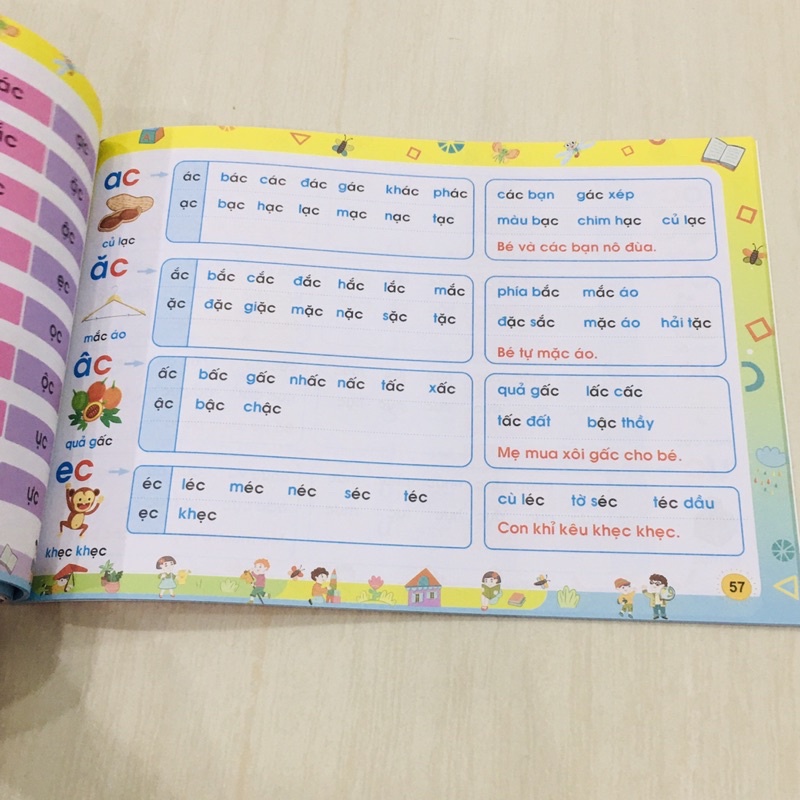 ác
ắc
ạc
ặc
ậc
ẹc
ọc
ộc
ục
ực
ac
củ lạc
ác bác các đác gác khác phác
ạc bạc hạc lạc mạc nạc tạc
các bạn gác xép
màu bạc chim hạc củ lạc
Bé và các bạn nô đùa.
ăc
mắc áo
ắc bắc cắc đắc hắc lắc mắc
ặc đặc giặc mặc nặc sặc tặc
phía bắc mắc áo
đặc sắc mặc áo hải tặc
Bé tự mặc áo.
âc
quả gấc
ấc bấc gấc nhấc nấc tấc xấc
ậc bậc chậc
quả gấc lấc cấc
tấc đất bậc thầy
Mẹ mua xôi gấc cho bé.
ec
khẹc khẹc
éc léc méc néc séc téc
ẹc khẹc
cù léc tờ séc téc dầu
Con khỉ kêu khẹc khẹc.
57